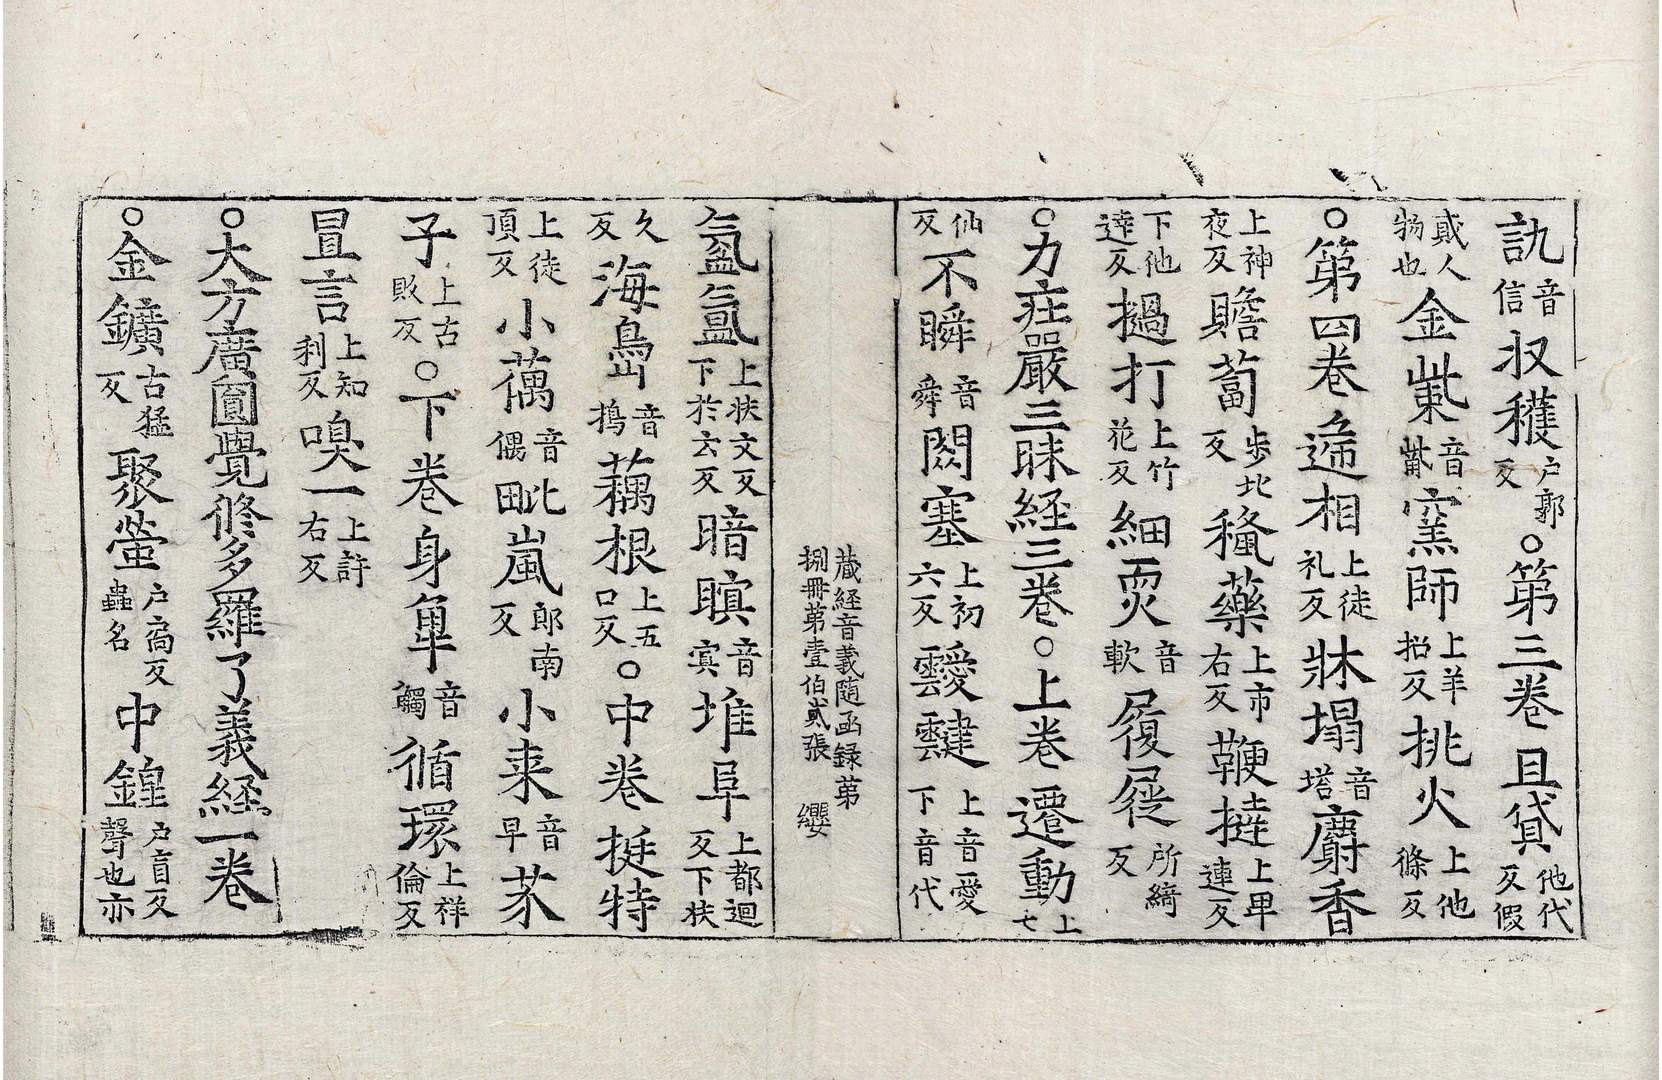 訙音信収穫户郭反○第三卷且貸他代反假
貮人物也金㭰音觜窯師上羊招反挑火上他條反
○第四卷逓相上徒礼反牀塌音塔麝香
上神夜反贍蔔步北反䅞藥上市右反鞭撻上卑連反
下他達反撾打上竹花反細耎音軟履屣所綺反
○力疰嚴三昧経三卷○上卷遷動上七
仙反不瞬音舜閡塞上初六反靉靆上音愛下音代
蔵経音義随函録第
捌冊第壹伯貳張 纓
氛氳上扶文反下於云反暗瞑音㝠堆阜上都迴反下扶
久反海㠀音擣藕根上五口反○中卷挺特
上徒頂反小藕音偶毗嵐郎南反小枣音早芥
子上古敗反○下卷身觕音觸循環上祥倫反
詈言上知利反嗅一上許右反
○大方廣圓覺修多羅了義経一卷
○金鑛古猛反聚螢户扃反蟲名中鍠户盲反聲也亦